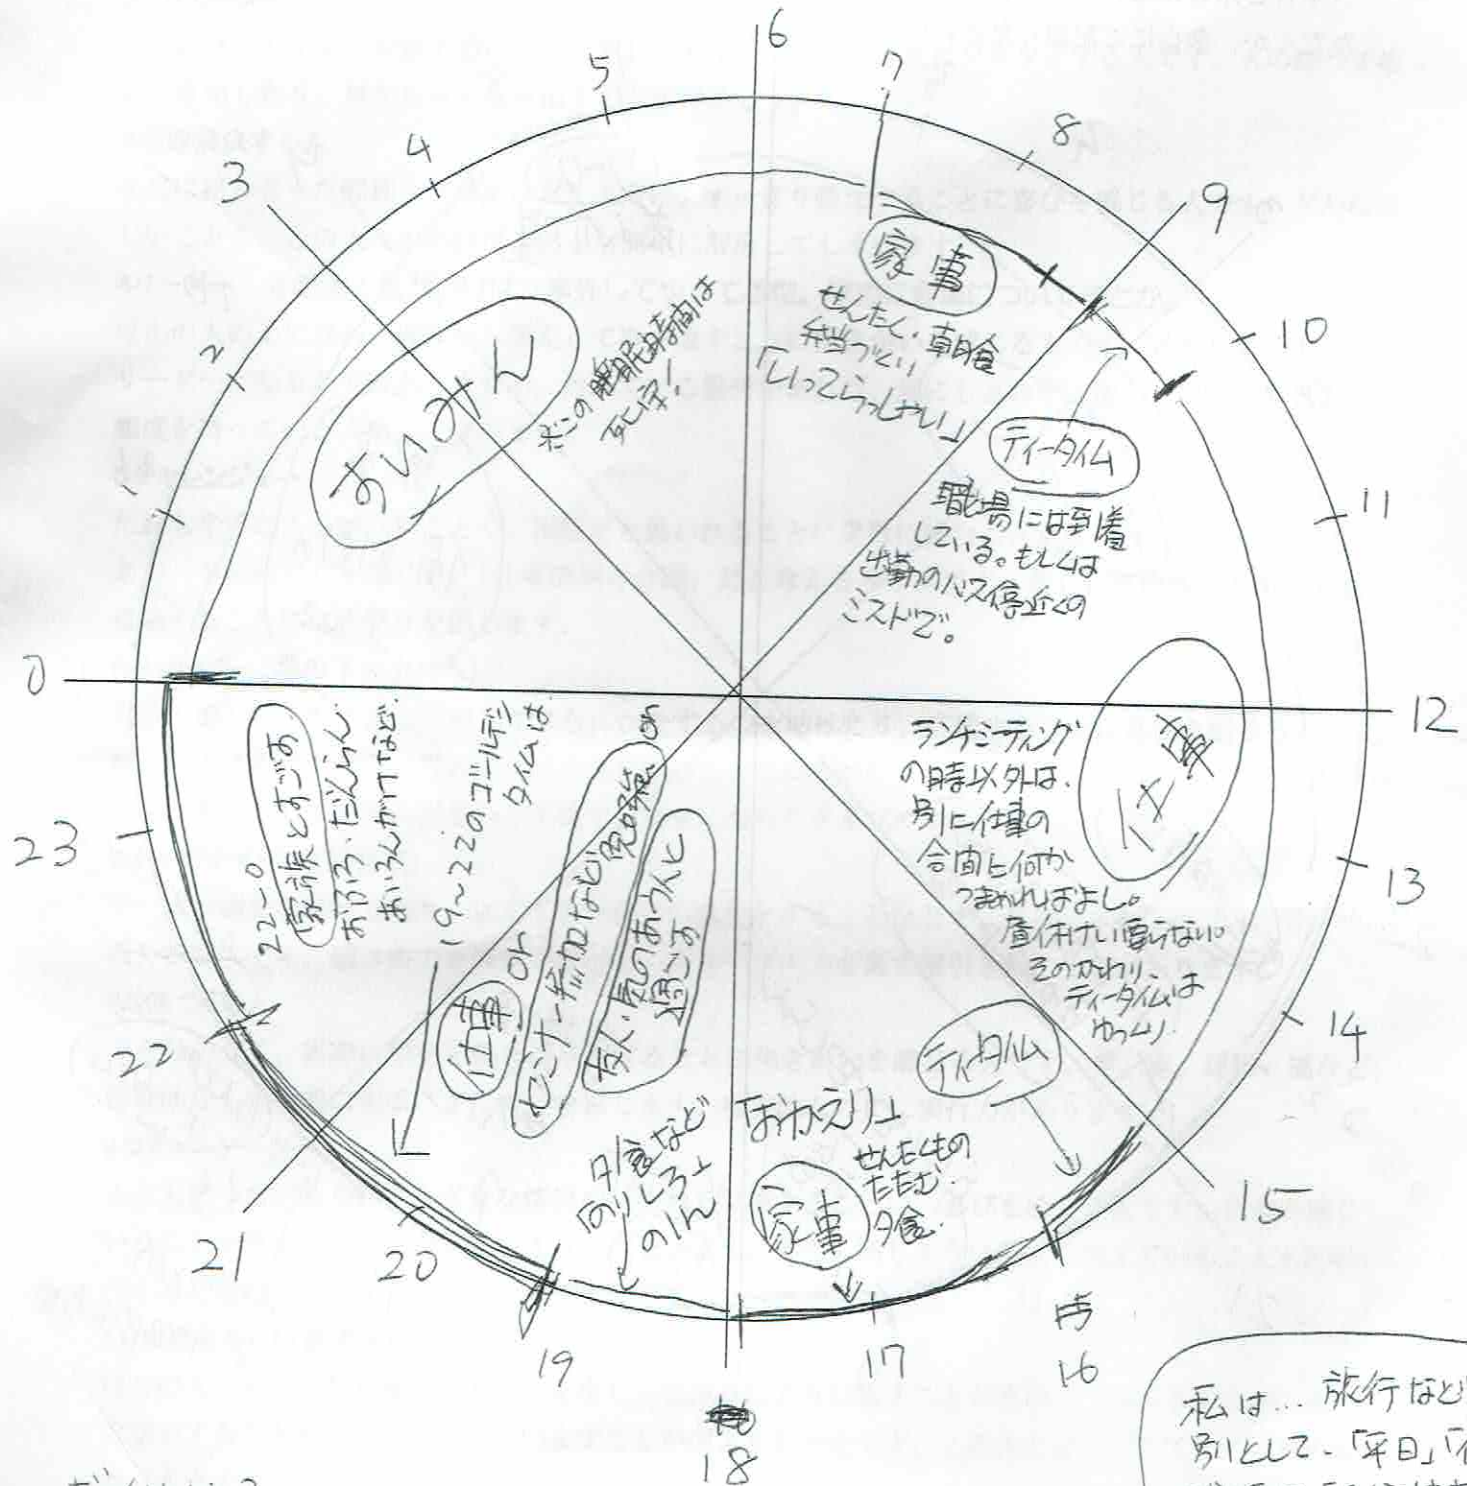 6
7
8
9
10
11
12
13
14
15
16
17
18
19
20
21
22
23
0
1
2
3
4
5
すいみん
※この睡眠時間は
死守!
家事
せんたく・朝食
弁当づくり
「いってらっしゃい」
ティータイム
職場には到着
している。もしくは
出勤のバス停近くの
ミスドで。
仕事
ランチミーティング
の時以外は、
別に仕事の
合間に何か
つまめればよし。
昼休けい要らない。
そのかわり、
ティータイムは
ゆっくり
ティータイム
「おかえり」
家事
せんたくもの
たたむ
夕食
夕食など
「のりしろ」
のじかん
19〜22のゴールデン
タイムは
仕事 or
セミナー参加など or
友人・気のあう人と
過ごす
22〜0
家族とすごす
おふろ・だんらん
あいろんがけなど
私は… 旅行など
別として、「平日」